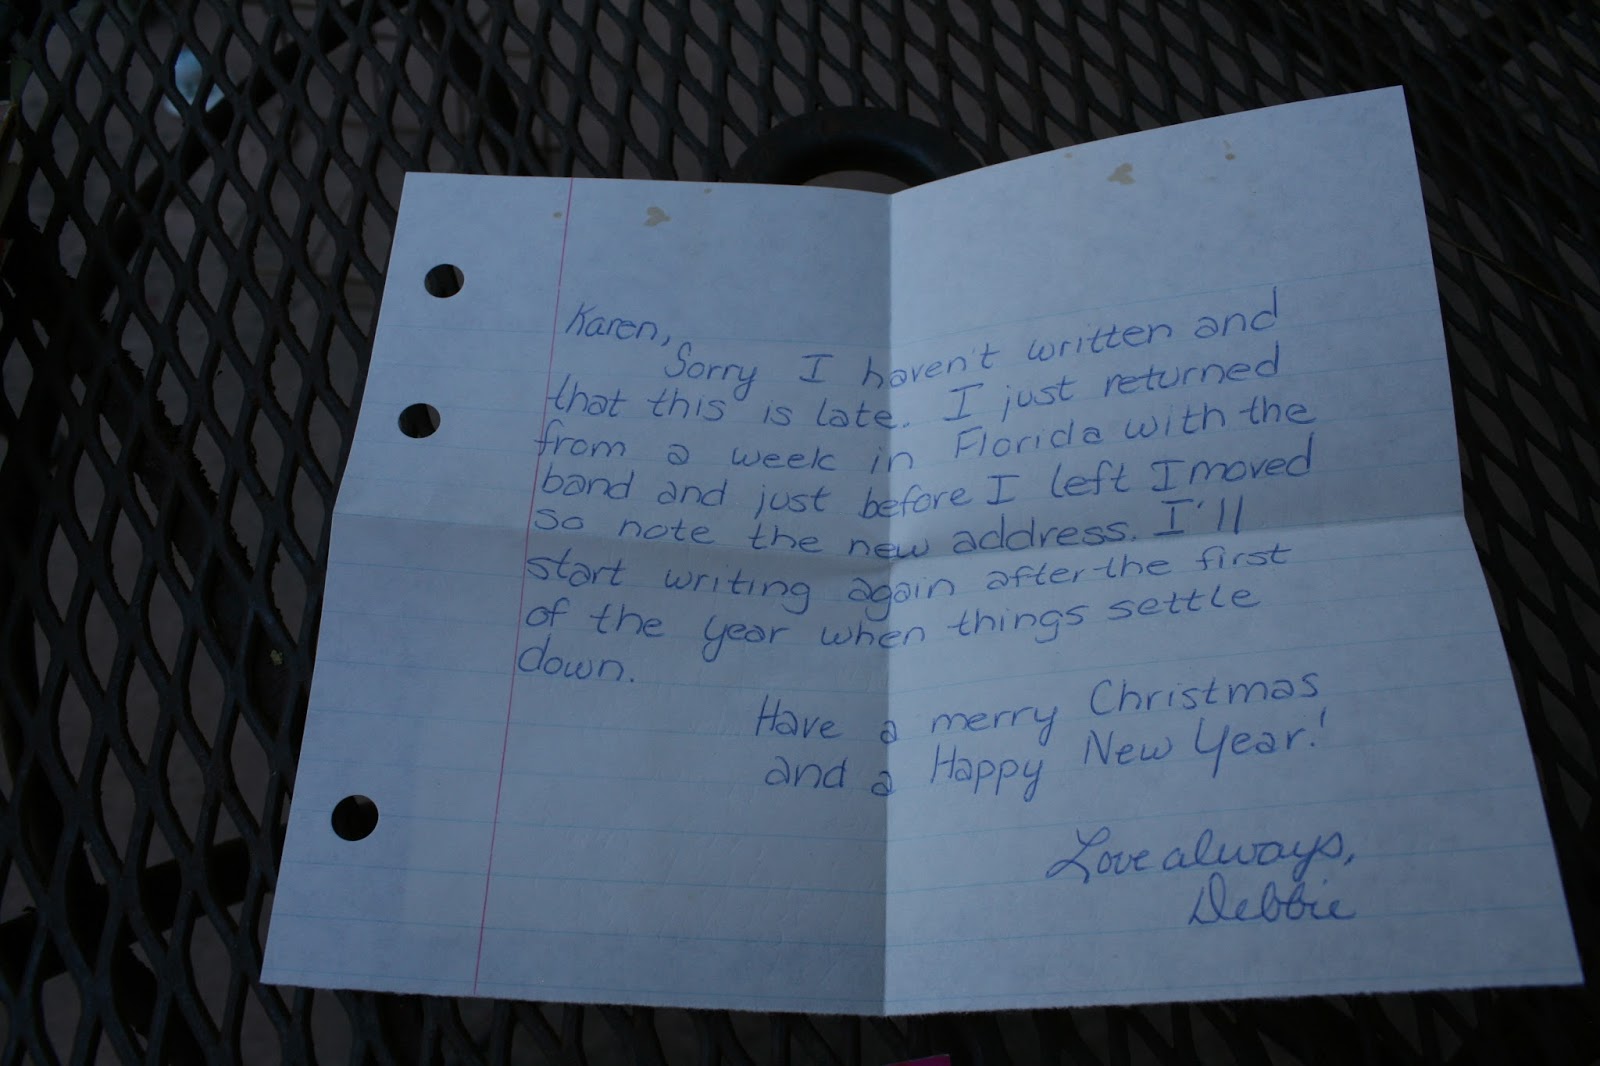 Karen,
Sorry I haven't written and
that this is late. I just returned
from a week in Florida with the
band and just before I left I moved
so note the new address. I'll
start writing again after the first
of the year when things settle
down.
Have a merry Christmas
and a Happy New Year!
Love always,
Debbie